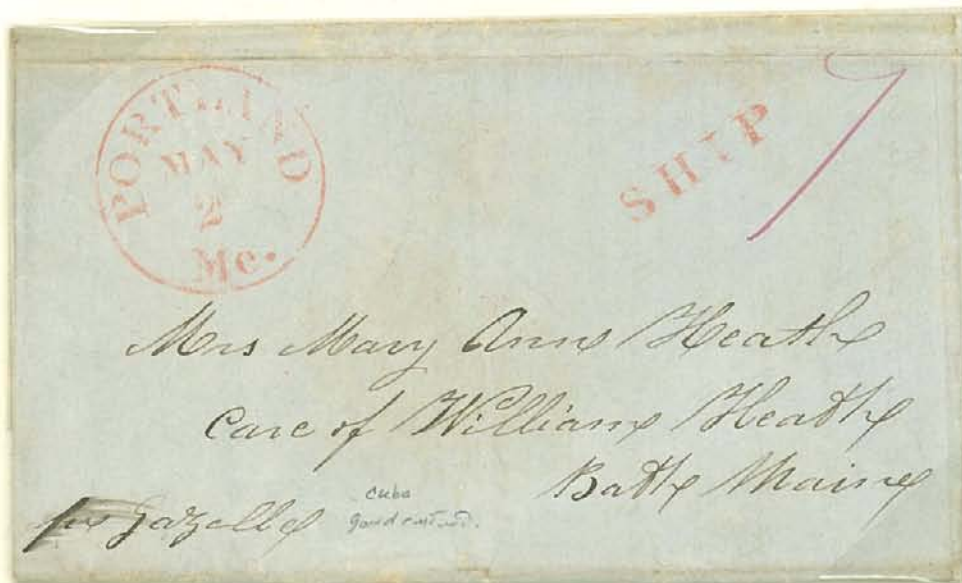 PORTLAND
MAY
2
Me.
SHIP
7
Mrs Mary Anne Heath
Care of William Heath
Bath Maine
per Gazelle
Cuba
Good